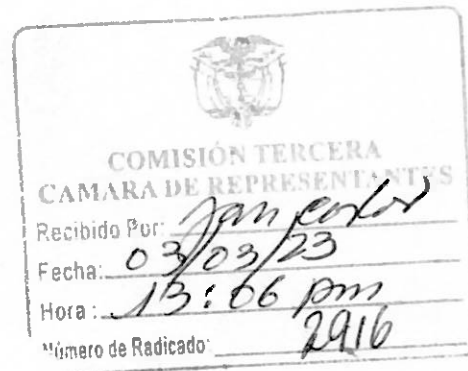 COMISIÓN TERCERA
CAMARA DE REPRESENTANTES
Recibido Por: Jan Carlos
Fecha: 03/03/23
Hora: 13:06 pm
Número de Radicado: 2916